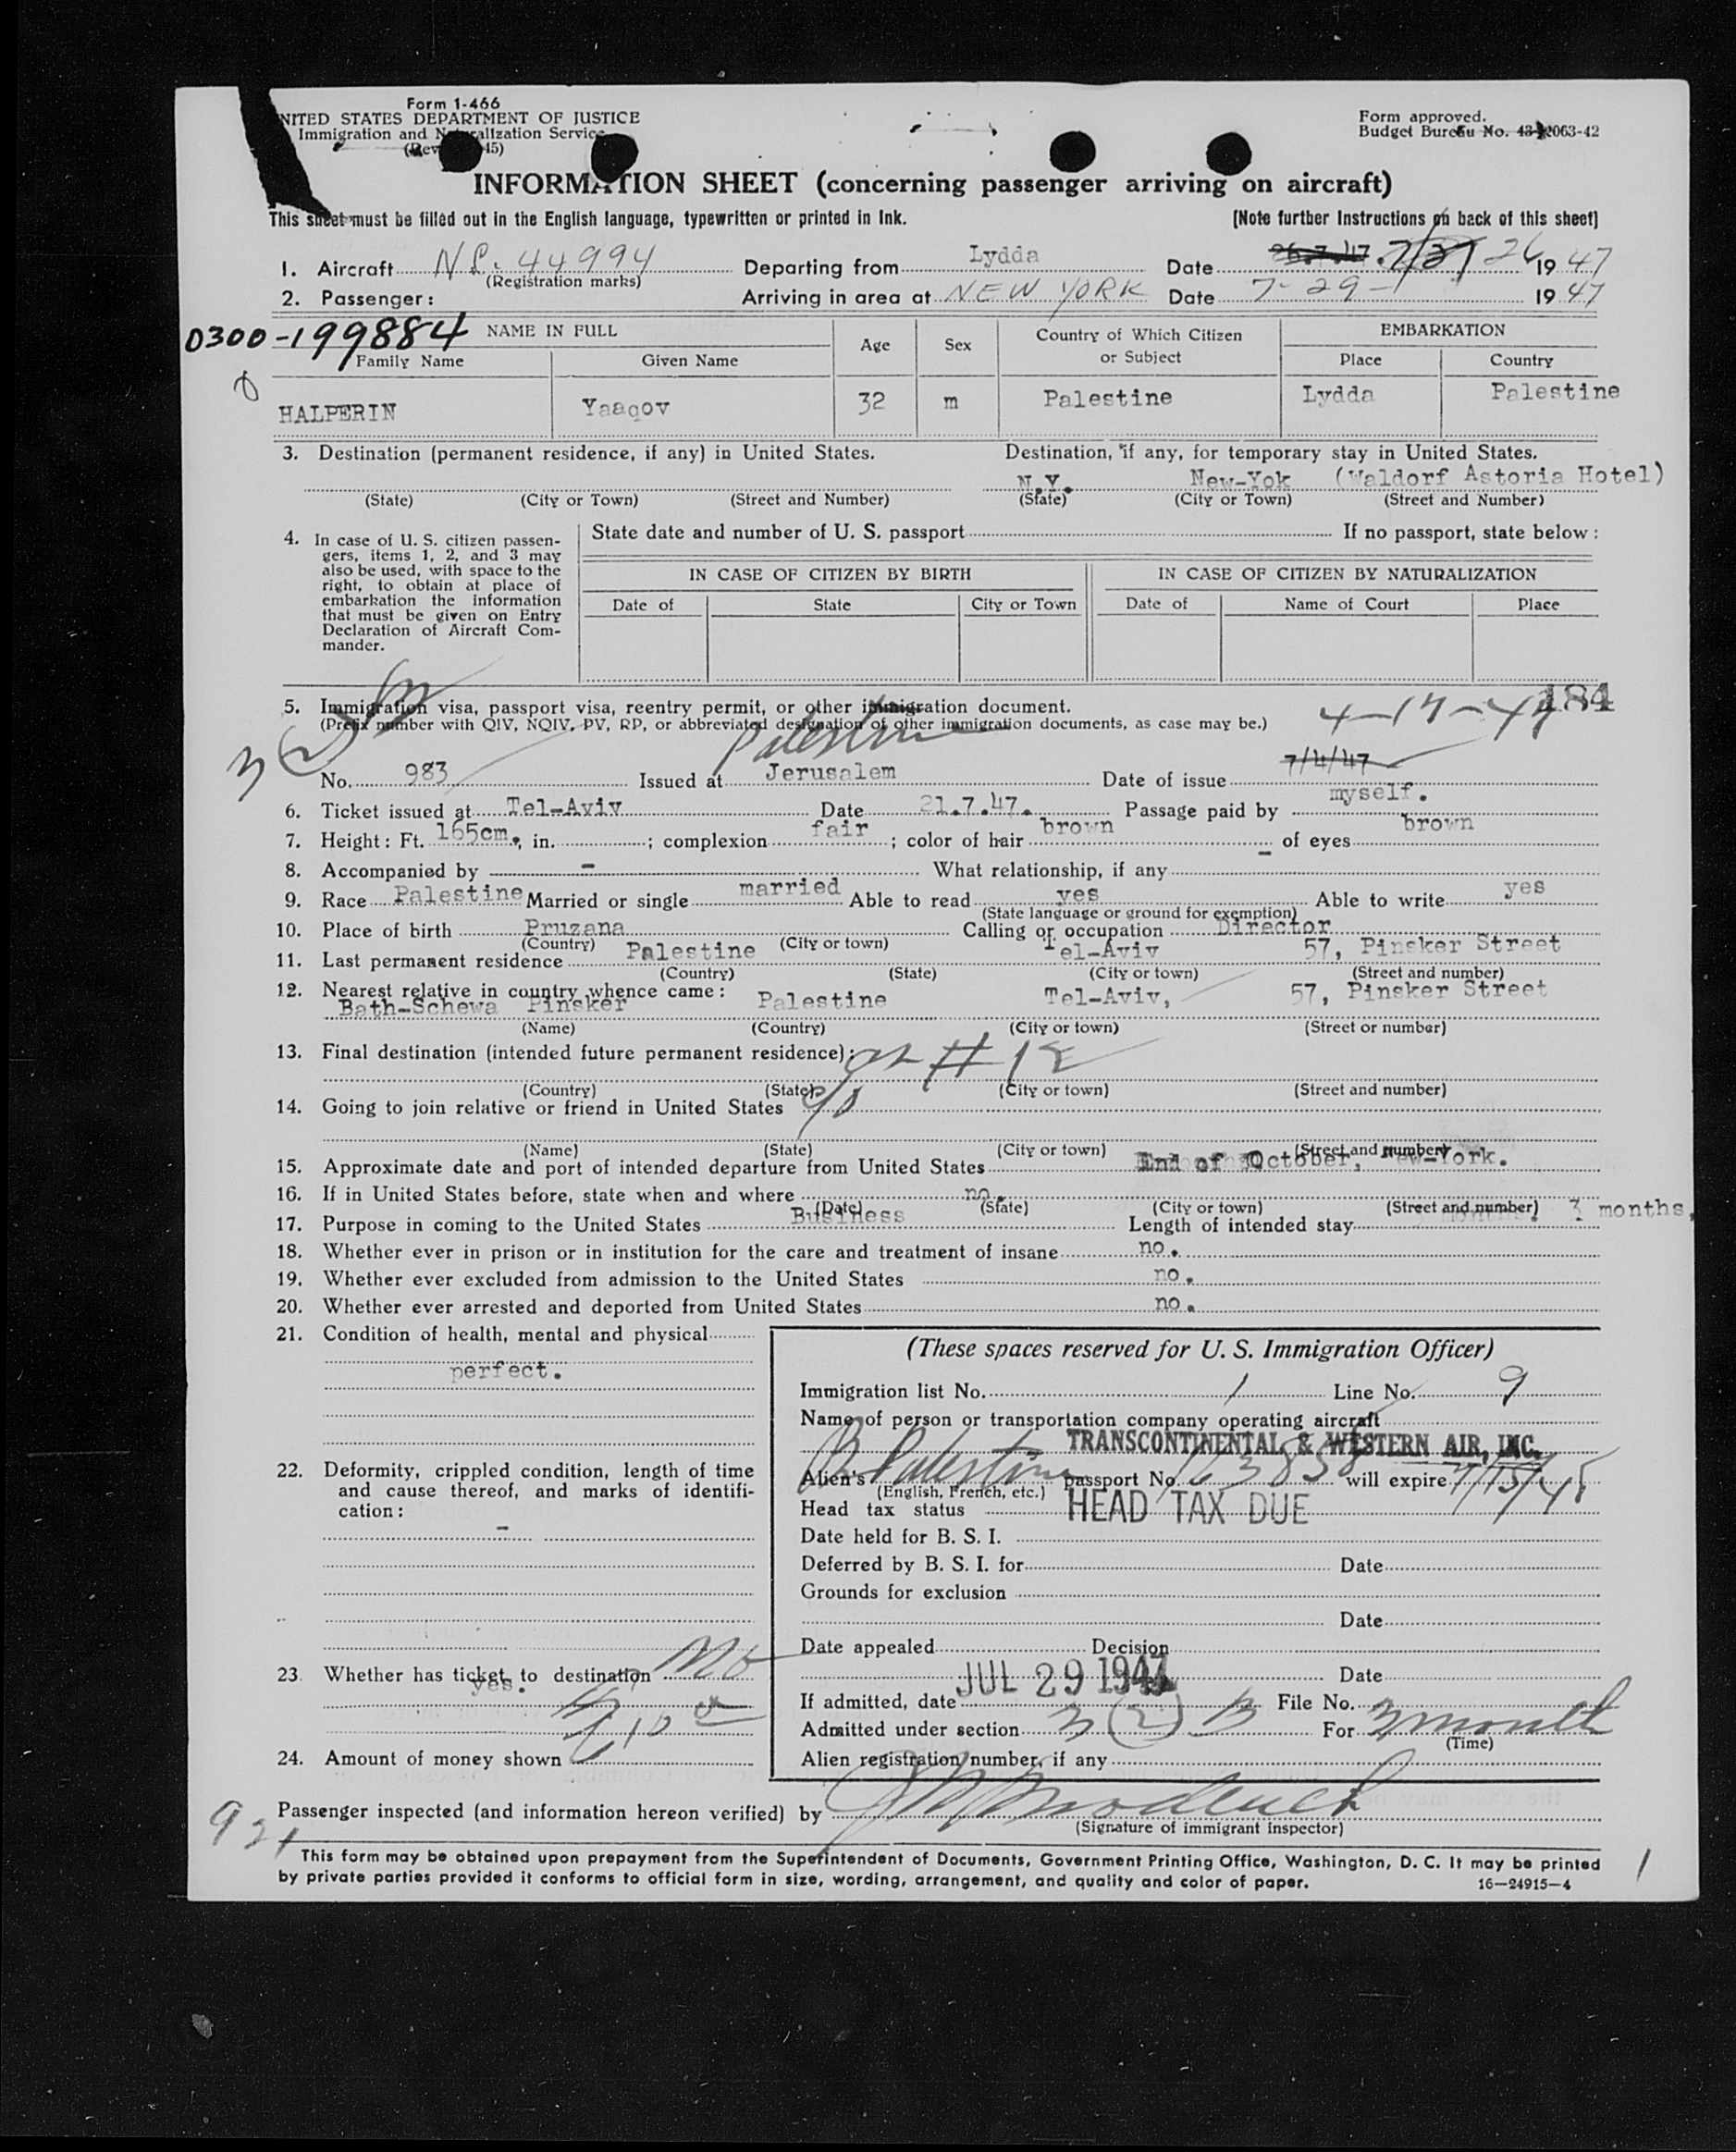 Form 1-466
NITED STATES DEPARTMENT OF JUSTICE
Immigration and Naturalization Service
Form approved.
Budget Bureau No. 43-R2063-42
INFORMATION SHEET (concerning passenger arriving on aircraft)
This sheet must be filled out in the English language, typewritten or printed in Ink.
[Note further Instructions on back of this sheet]
1. Aircraft 44994 Departing from Lydda Date 26 19 47
(Registration marks)
2. Passenger: Arriving in area at NEW YORK Date 7-29- 19 47
0300-199884 NAME IN FULL Age Sex Country of Which Citizen or Subject EMBARKATION
Family Name Given Name Place Country
HALPERIN Yaaqov 32 m Palestine Lydda Palestine
3. Destination (permanent residence, if any) in United States. Destination, if any, for temporary stay in United States.
N.Y. New-Yok (Waldorf Astoria Hotel)
(State) (City or Town) (Street and Number) (State) (City or Town) (Street and Number)
4. In case of U. S. citizen passen-
gers, items 1, 2, and 3 may
also be used, with space to the
right, to obtain at place of
embarkation the information
that must be given on Entry
Declaration of Aircraft Com-
mander.
State date and number of U. S. passport If no passport, state below:
IN CASE OF CITIZEN BY BIRTH IN CASE OF CITIZEN BY NATURALIZATION
Date of State City or Town Date of Name of Court Place
5. Immigration visa, passport visa, reentry permit, or other immigration document. 184
(Prefix number with QIV, NQIV, PV, RP, or abbreviated designation of other immigration documents, as case may be.)
3(2)
Palestine
No. 983 Issued at Jerusalem Date of issue 7/4/47
6. Ticket issued at Tel-Aviv Date 21.7.47. Passage paid by myself.
7. Height: Ft. 165cm., in. ; complexion fair ; color of hair brown of eyes brown
8. Accompanied by - What relationship, if any -
9. Race Palestine Married or single married Able to read yes Able to write yes
(State language or ground for exemption)
10. Place of birth Pruzana Calling or occupation Director
(Country) (City or town)
11. Last permanent residence Palestine Tel-Aviv 57, Pinsker Street
(Country) (State) (City or town) (Street and number)
12. Nearest relative in country whence came:
Bath-Schewa Pinsker Palestine Tel-Aviv, 57, Pinsker Street
(Name) (Country) (City or town) (Street or number)
13. Final destination (intended future permanent residece): # 12
(Country) (State) (City or town) (Street and number)
14. Going to join relative or friend in United States
(Name) (State) (City or town) (Street and number)
15. Approximate date and port of intended departure from United States End of October, New-York.
16. If in United States before, state when and where no.
(Date) (State) (City or town) (Street and number)
17. Purpose in coming to the United States Business Length of intended stay 3 months.
18. Whether ever in prison or in institution for the care and treatment of insane no.
19. Whether ever excluded from admission to the United States no.
20. Whether ever arrested and deported from United States no.
21. Condition of health, mental and physical
perfect.
22. Deformity, crippled condition, length of time
and cause thereof, and marks of identifi-
cation:
-
23. Whether has ticket to destination
yes.
24. Amount of money shown
(These spaces reserved for U. S. Immigration Officer)
Immigration list No. 1 Line No. 9
Name of person or transportation company operating aircraft
TRANSCONTINENTAL & WESTERN AIR, INC.
Alien's Palestine passport No. will expire
(English, French, etc.)
Head tax status HEAD TAX DUE
Date held for B. S. I.
Deferred by B. S. I. for Date
Grounds for exclusion
Date
Date appealed Decision
Date
If admitted, date JUL 29 1947 File No.
Admitted under section 3 (2) B For 3 month
(Time)
Alien registration number, if any
Passenger inspected (and information hereon verified) by
(Signature of immigrant inspector)
921
This form may be obtained upon prepayment from the Superintendent of Documents, Government Printing Office, Washington, D. C. It may be printed
by private parties provided it conforms to official form in size, wording, arrangement, and quality and color of paper. 16—24915-4
1